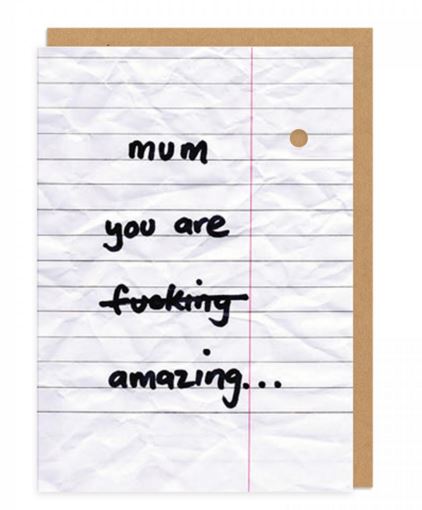 mum
you are
fucking
amazing...